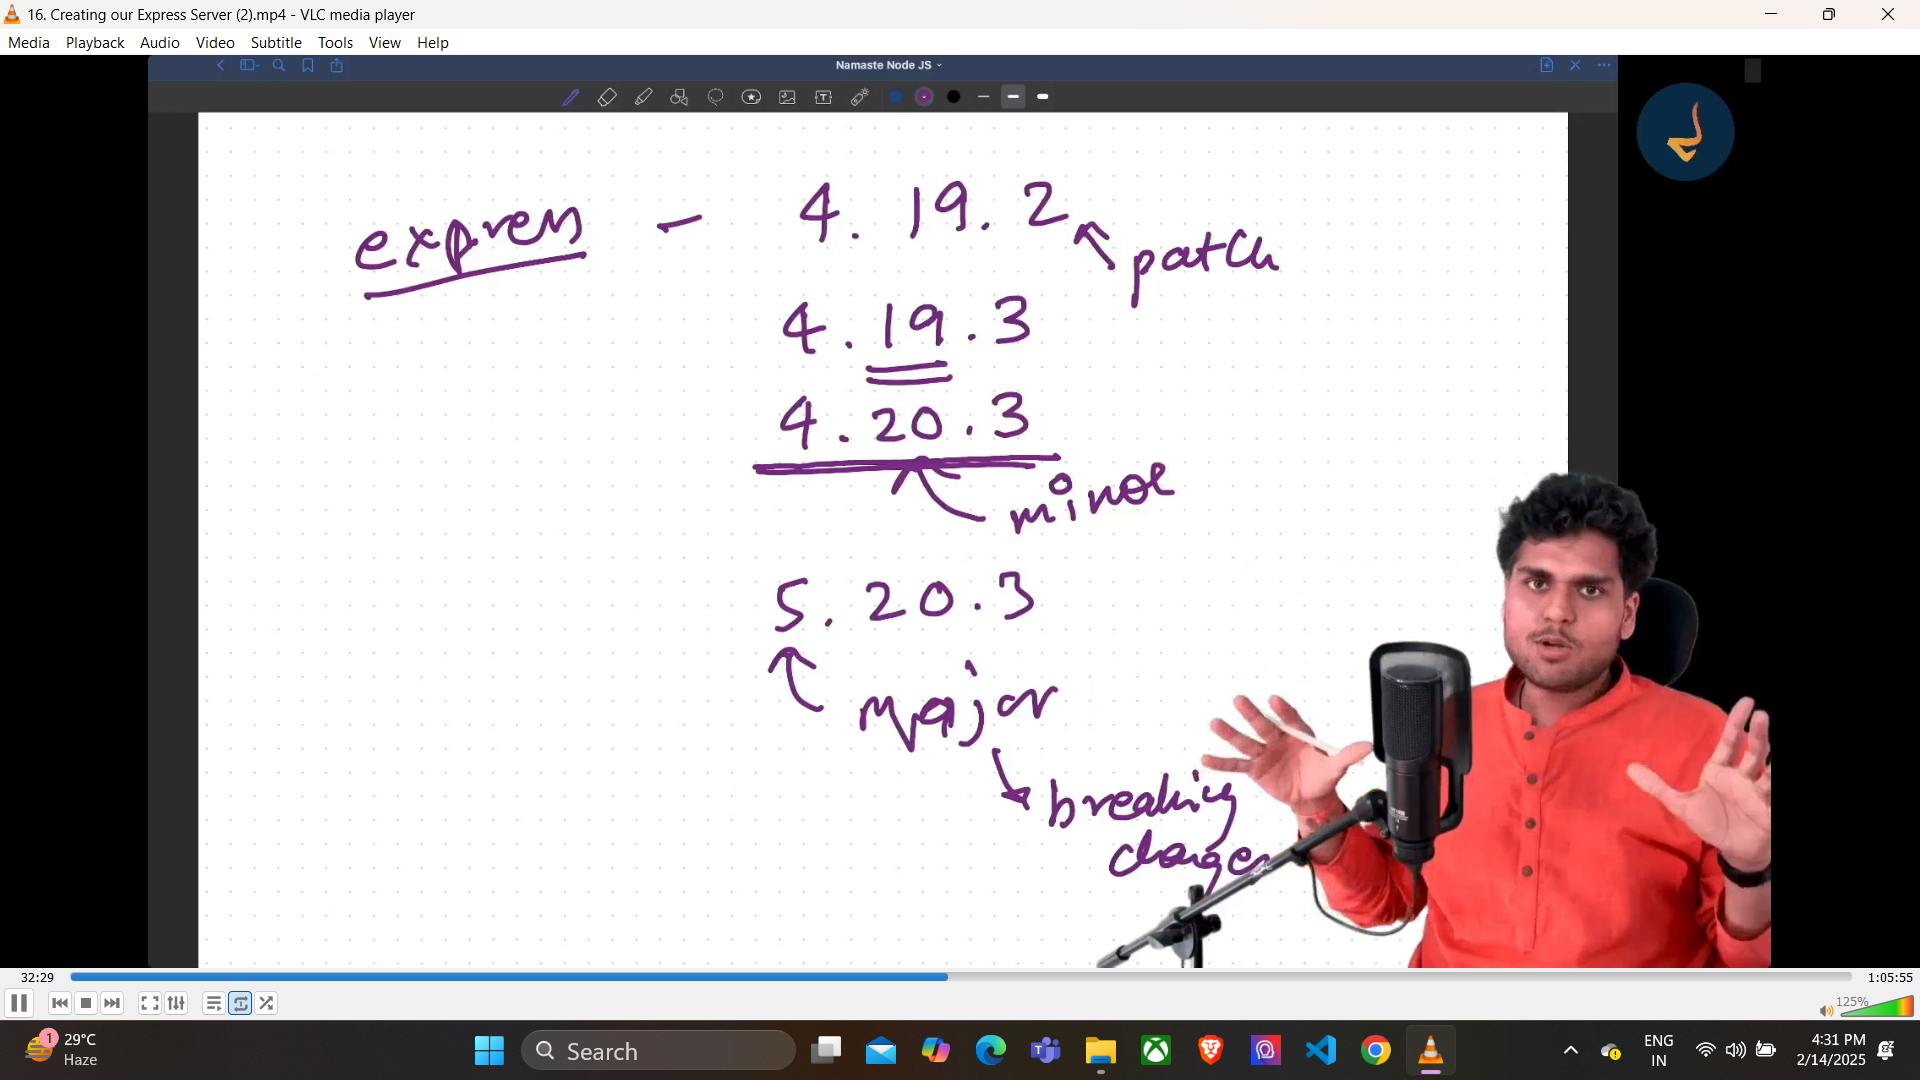 16. Creating our Express Server (2).mp4 - VLC media player
Media Playback Audio Video Subtitle Tools View Help
Namaste Node JS
express - 4.19.2
patch
4.19.3
4.20.3
minor
5.20.3
major
breaking
changes
32:29 1:05:55
125%
1 29°C
Haze
Search
ENG
IN
4:31 PM
2/14/2025